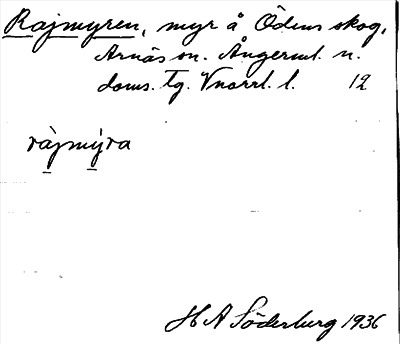 Rajmyren, myr å Ödens skog,
Arnäs sn. Ångerml. n.
doms. tg. Vnorrl. l. 12
ràjmýra
H A Söderberg 1936